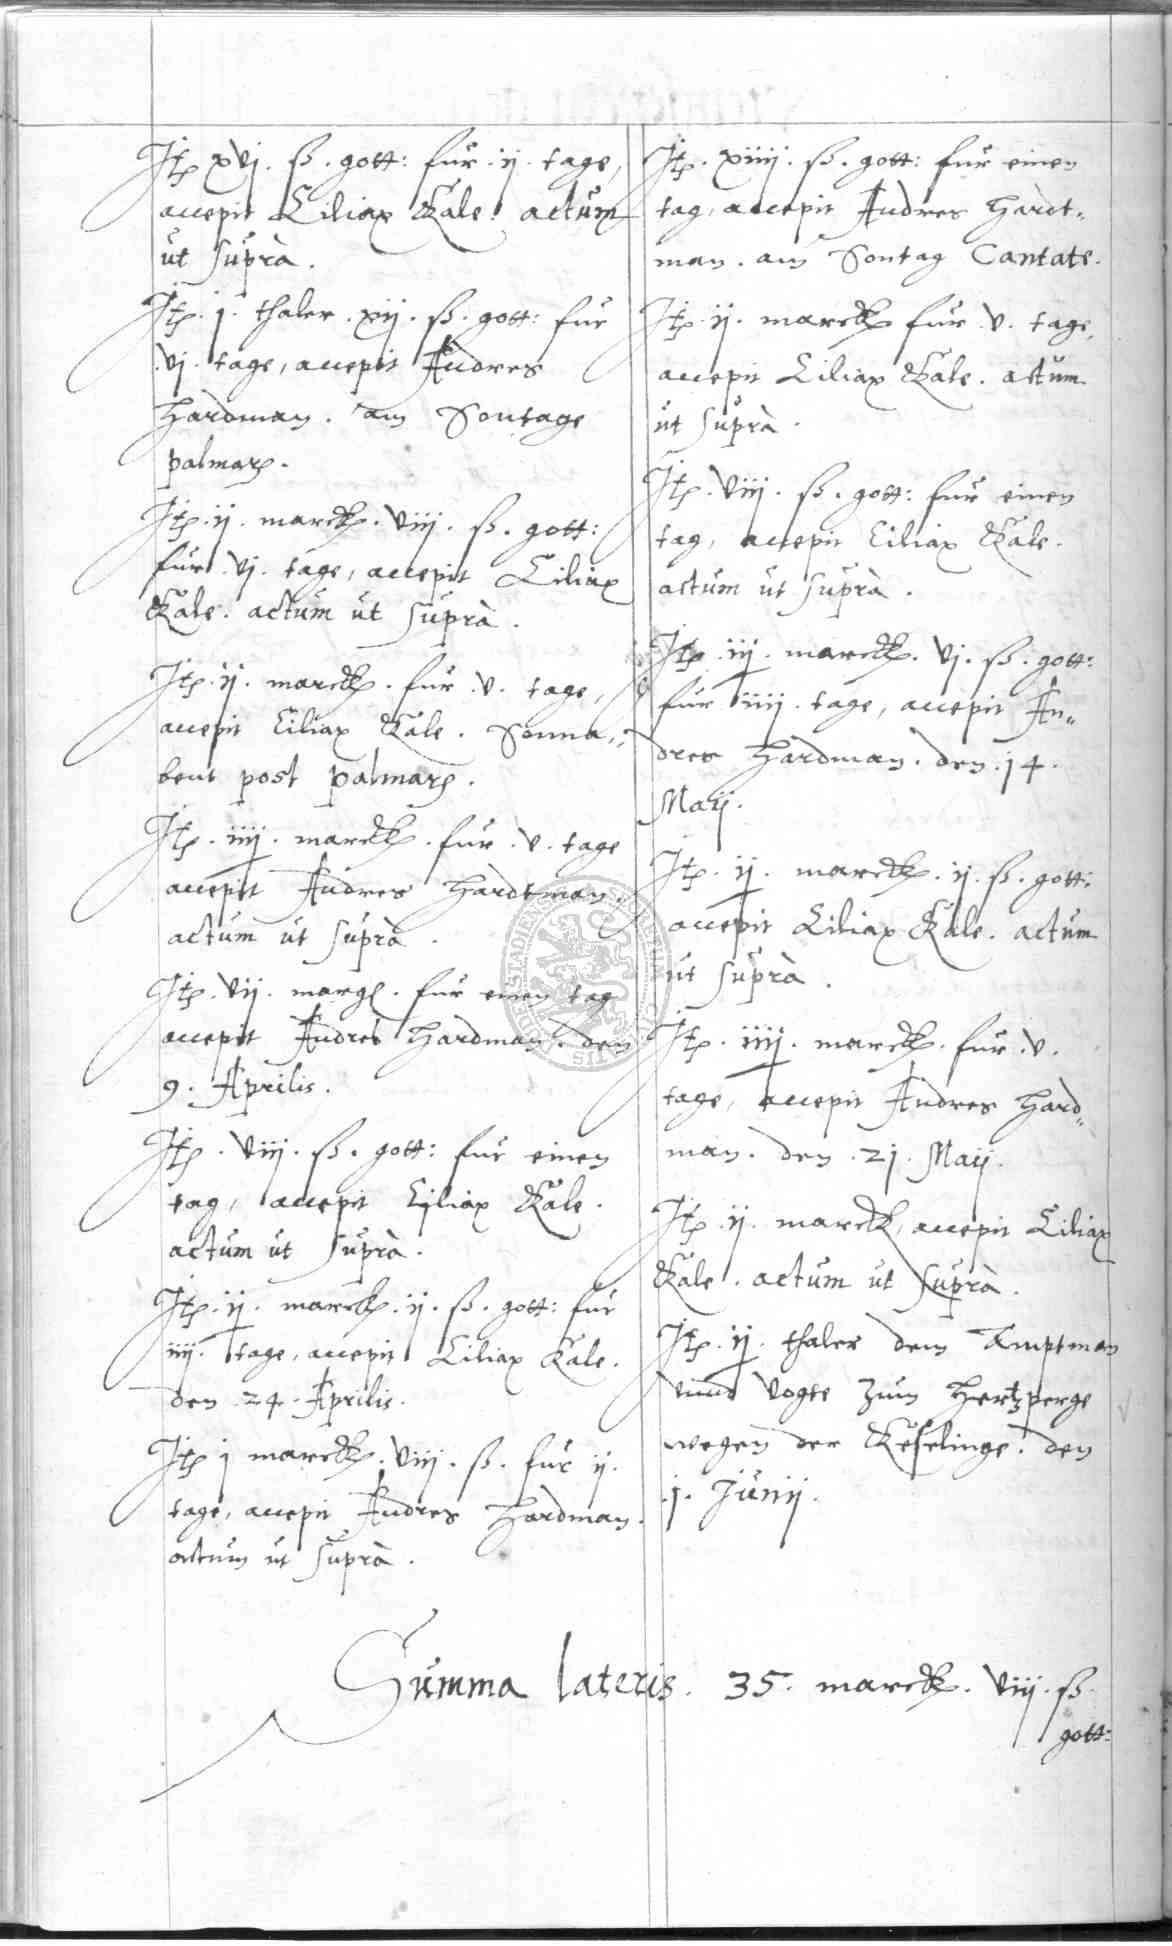 Itꝫ xvj. ß. gott: fur. ij. tage,
accepit Ciliax Kale. actum
ut suprà.
Itꝫ. j. thaler. xij. ß. gott: fur
vj. tage, accepit Andres
Hardman. am Sontage
palmarꝫ.
Itꝫ. ij. marck. viij. ß. gott:
fur. vj. tage, accepit Ciliax
Kale. actum ut suprà.
Itꝫ. ij. marck. fur. v. tage,
accepit Ciliax Kale. Sonna„
bent post palmarꝫ.
Itꝫ. iiij. marck. fur. v. tage
accepit Andres Hardtman.
actum ut suprà.
Itꝫ. vij. margl. fur einen tag
accepit Andres Hardman. den
9. Aprilis.
Itꝫ. viij. ß. gott: fur einen
tag, accepit Ciliax Kale.
actum ut suprà.
Itꝫ. ij. marck. ij. ß. gott: fur
iiij. tage, accepit Ciliax Kale.
den 24. Aprilis.
Itꝫ j marck. viij. ß. fur ij.
tage, accepit Andres Hardman.
actum ut suprà.
Itꝫ. xiiij. ß. gott: fur einen
tag, accepit Andres Hardt„
man. am Sontag Cantate.
Itꝫ. ij. marck fur. v. tage,
accepit Ciliax Kale. actum
ut suprà.
Itꝫ. viij. ß. gott: fur einen
tag, accepit Ciliax Kale.
actum ut suprà.
Itꝫ. iij. marck. vj. ß. gott:
fur iiij. tage, accepit An„
dres Hardman. den. 14.
Maij.
Itꝫ. ij. marck. ij. ß. gott:
accepit Ciliax Kale. actum
ut suprà.
Itꝫ. iiij. marck. fur. v.
tage, accepit Andres Hard„
man. den. 21. Maij.
Itꝫ. ij. marck, accepit Ciliax
Kale. actum ut suprà.
Itꝫ. ij. thaler dem Amptman
vnnd Vogte zum Hertzperge
wegen der Keselinge. den
.j. Junij.
Summa lateris. 35. marck. viij. ß.
gott: